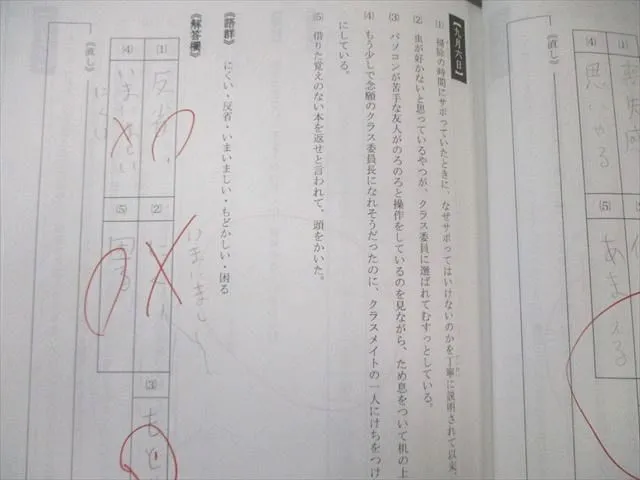 《直し》
(1)
(4)
思いやる
(5)
あまえる
【九月六日】
(1) 掃除の時間にサボっていたときに、なぜサボってはいけないのかを丁寧に説明されて以来、
(2) 虫が好かないと思っているやつが、クラス委員に選ばれてむすっとしている。
(3) パソコンが苦手な友人がのろのろと操作をしているのを見ながら、ため息をついて机の上
(4) もう少しで念願のクラス委員長になれそうだったのに、クラスメイトの一人にけちをつけ
にしている。
(5) 借りた覚えのない本を返せと言われて、頭をかいた。
《語群》 にくい・反省・いまいましい・もどかしい・困る
《解答欄》
(1) 反省
(2)
いまいましい
(3) もど
(4)
(5) 困る
にくい
《直し》